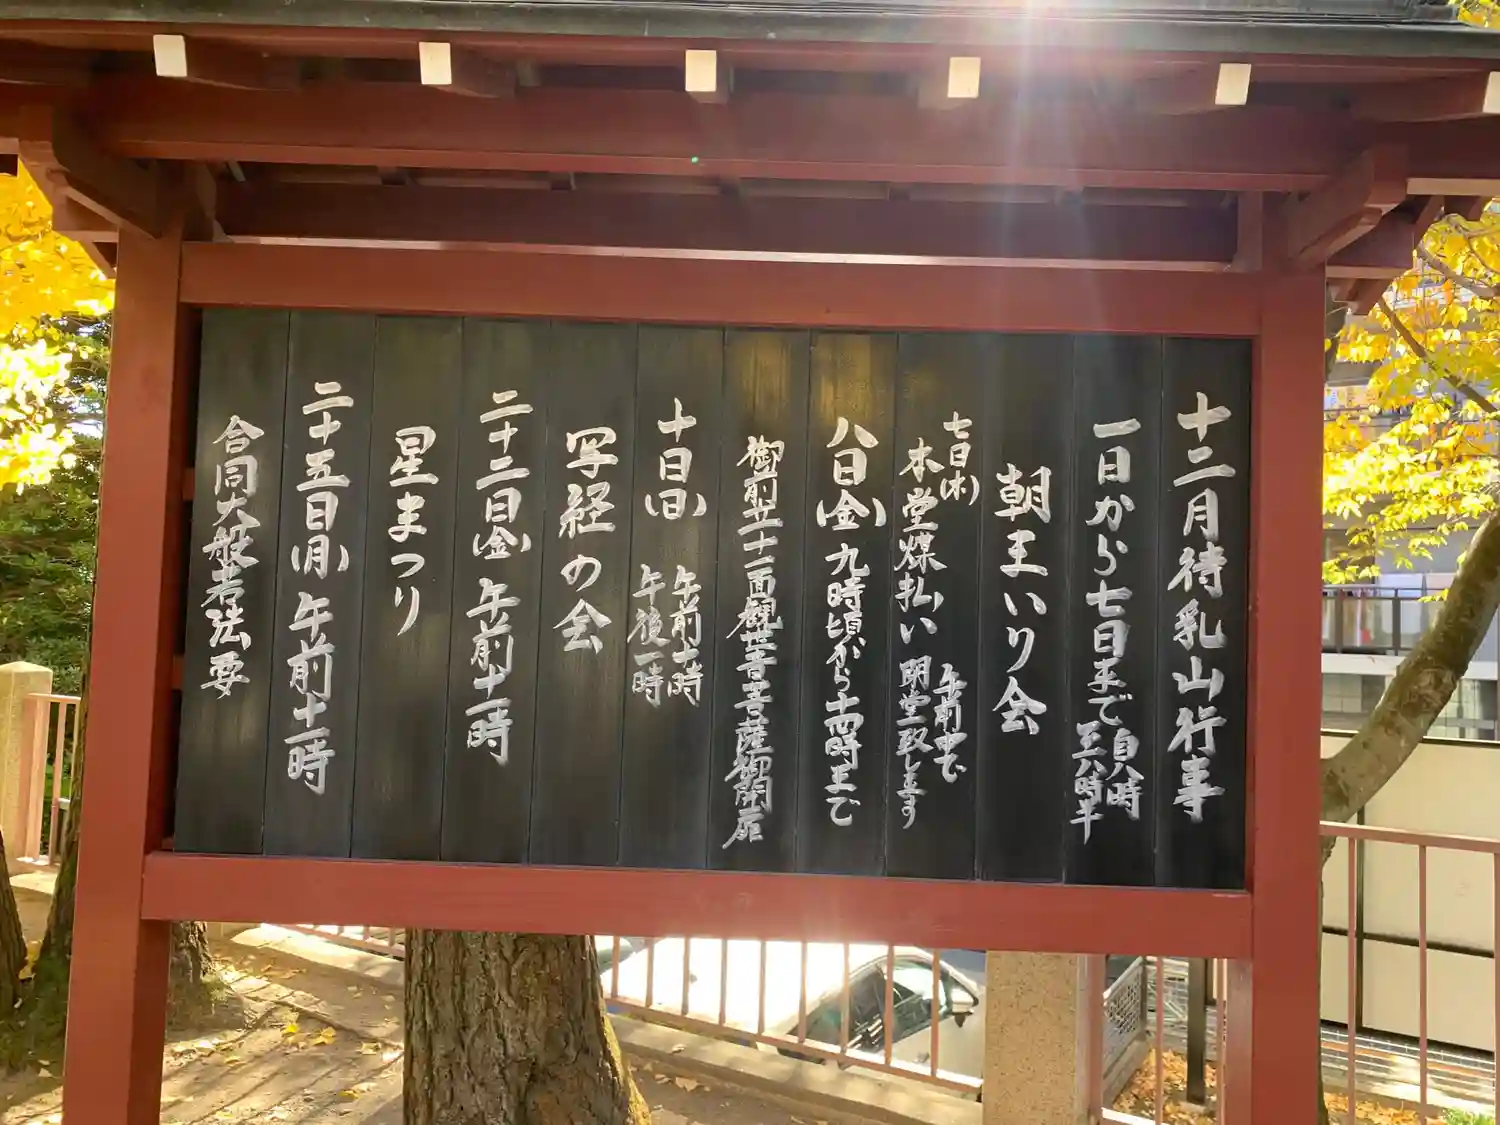 十二月待乳山行事
一日から七日まで 自八時
至八時半
朝まいり会
七日(木)
本堂煤払い 午前中で
閉堂致します
八日(金)九時頃から十四時まで
御前立十一面観世音菩薩御開扉
十日(日) 午前十時
午後一時
写経の会
二十二日(金)午前十一時
星まつり
二十五日(月)午前十一時
合同大般若法要